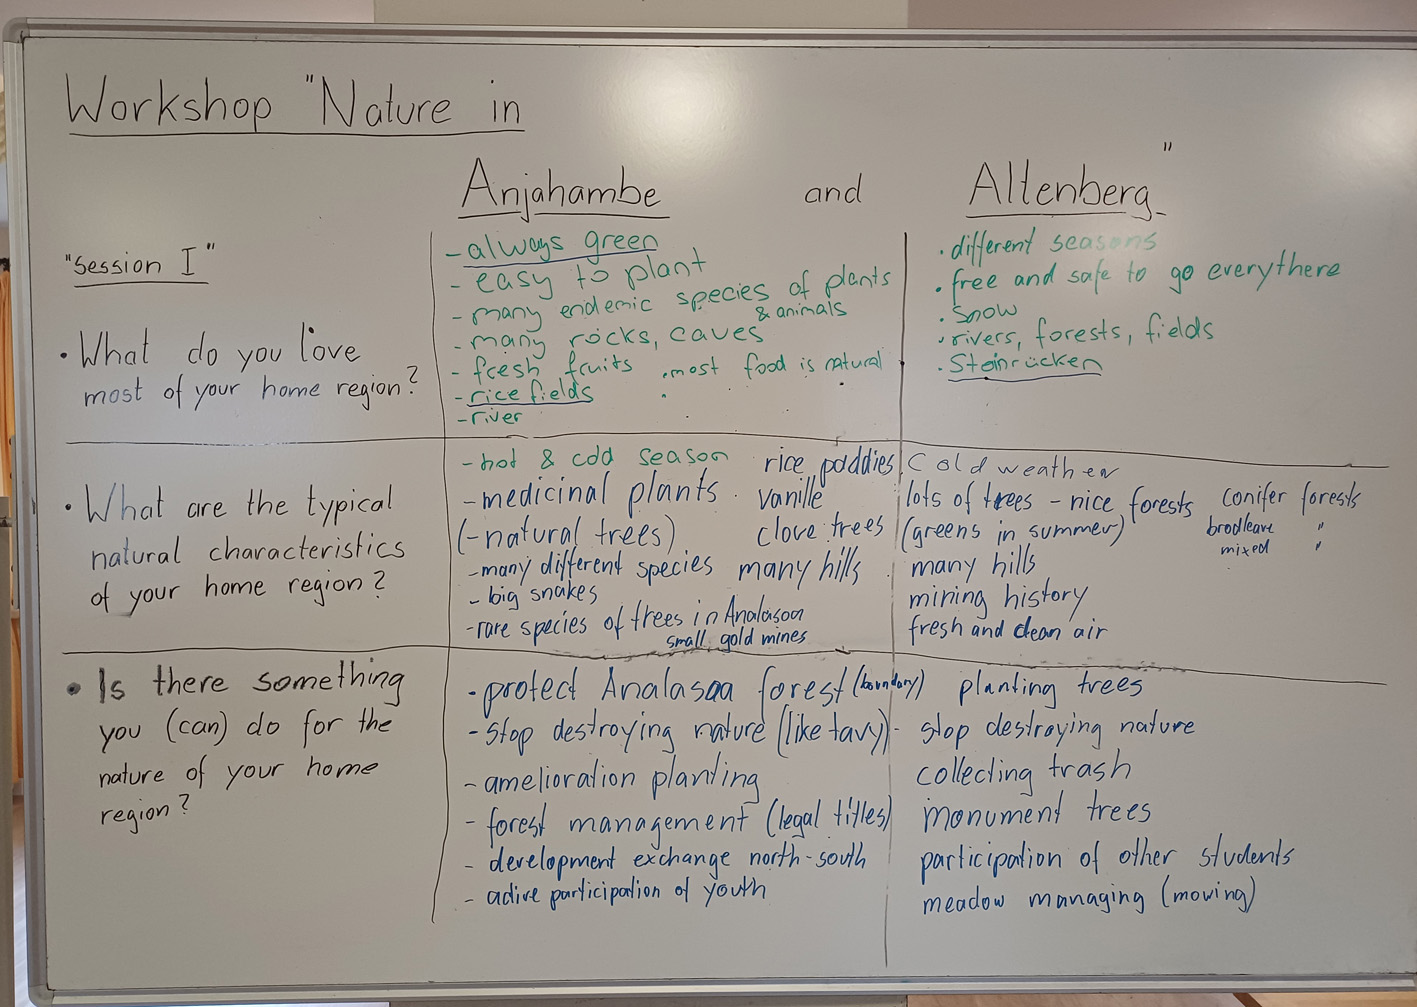 Workshop "Nature in
Anjahambe and Altenberg"
"Session I"
• What do you love
most of your home region?
- always green
- easy to plant
- many endemic species of plants
& animals
- many rocks, caves
- fresh fruits . most food is natural
- rice fields
- river
• different seasons
• free and safe to go everythere
• Snow
• rivers, forests, fields
• Steinrücken
• What are the typical
natural characteristics
of your home region?
- hot & cold season rice paddies
- medicinal plants . vanille
(- natural trees) clove trees
- many different species many hills
- big snakes
- rare species of trees in Analasoa
small gold mines
Cold weather
lots of trees - nice forests conifer forests
(greens in summer) brodleave "
mixed "
many hills
mining history
fresh and clean air
• Is there something
you (can) do for the
nature of your home
region?
• protect Analasaa forest (boundary)
- stop destroying nature (like tavy)
- amelioration planting
- forest management (legal titles)
- development exchange north-south
- active participation of youth
planting trees
- stop destroying nature
collecting trash
monument trees
participation of other students
meadow managing (mowing)